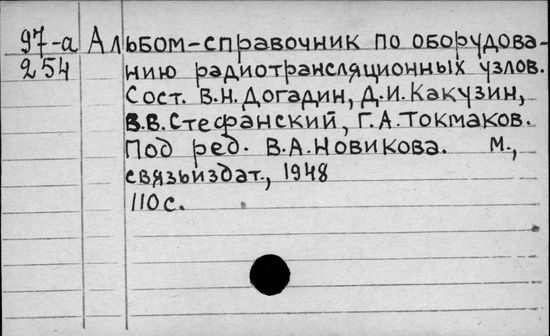 97-а Альбом-справочник по оборудова-
254 нию радиотрансляционных узлов.
Сост. В.Н. Догадин, Д.И. Какузин,
В.В. Стефанский, Г.А. Токмаков.
Под ред. В.А. Новикова. М.,
связьиздат., 1948
110 с.